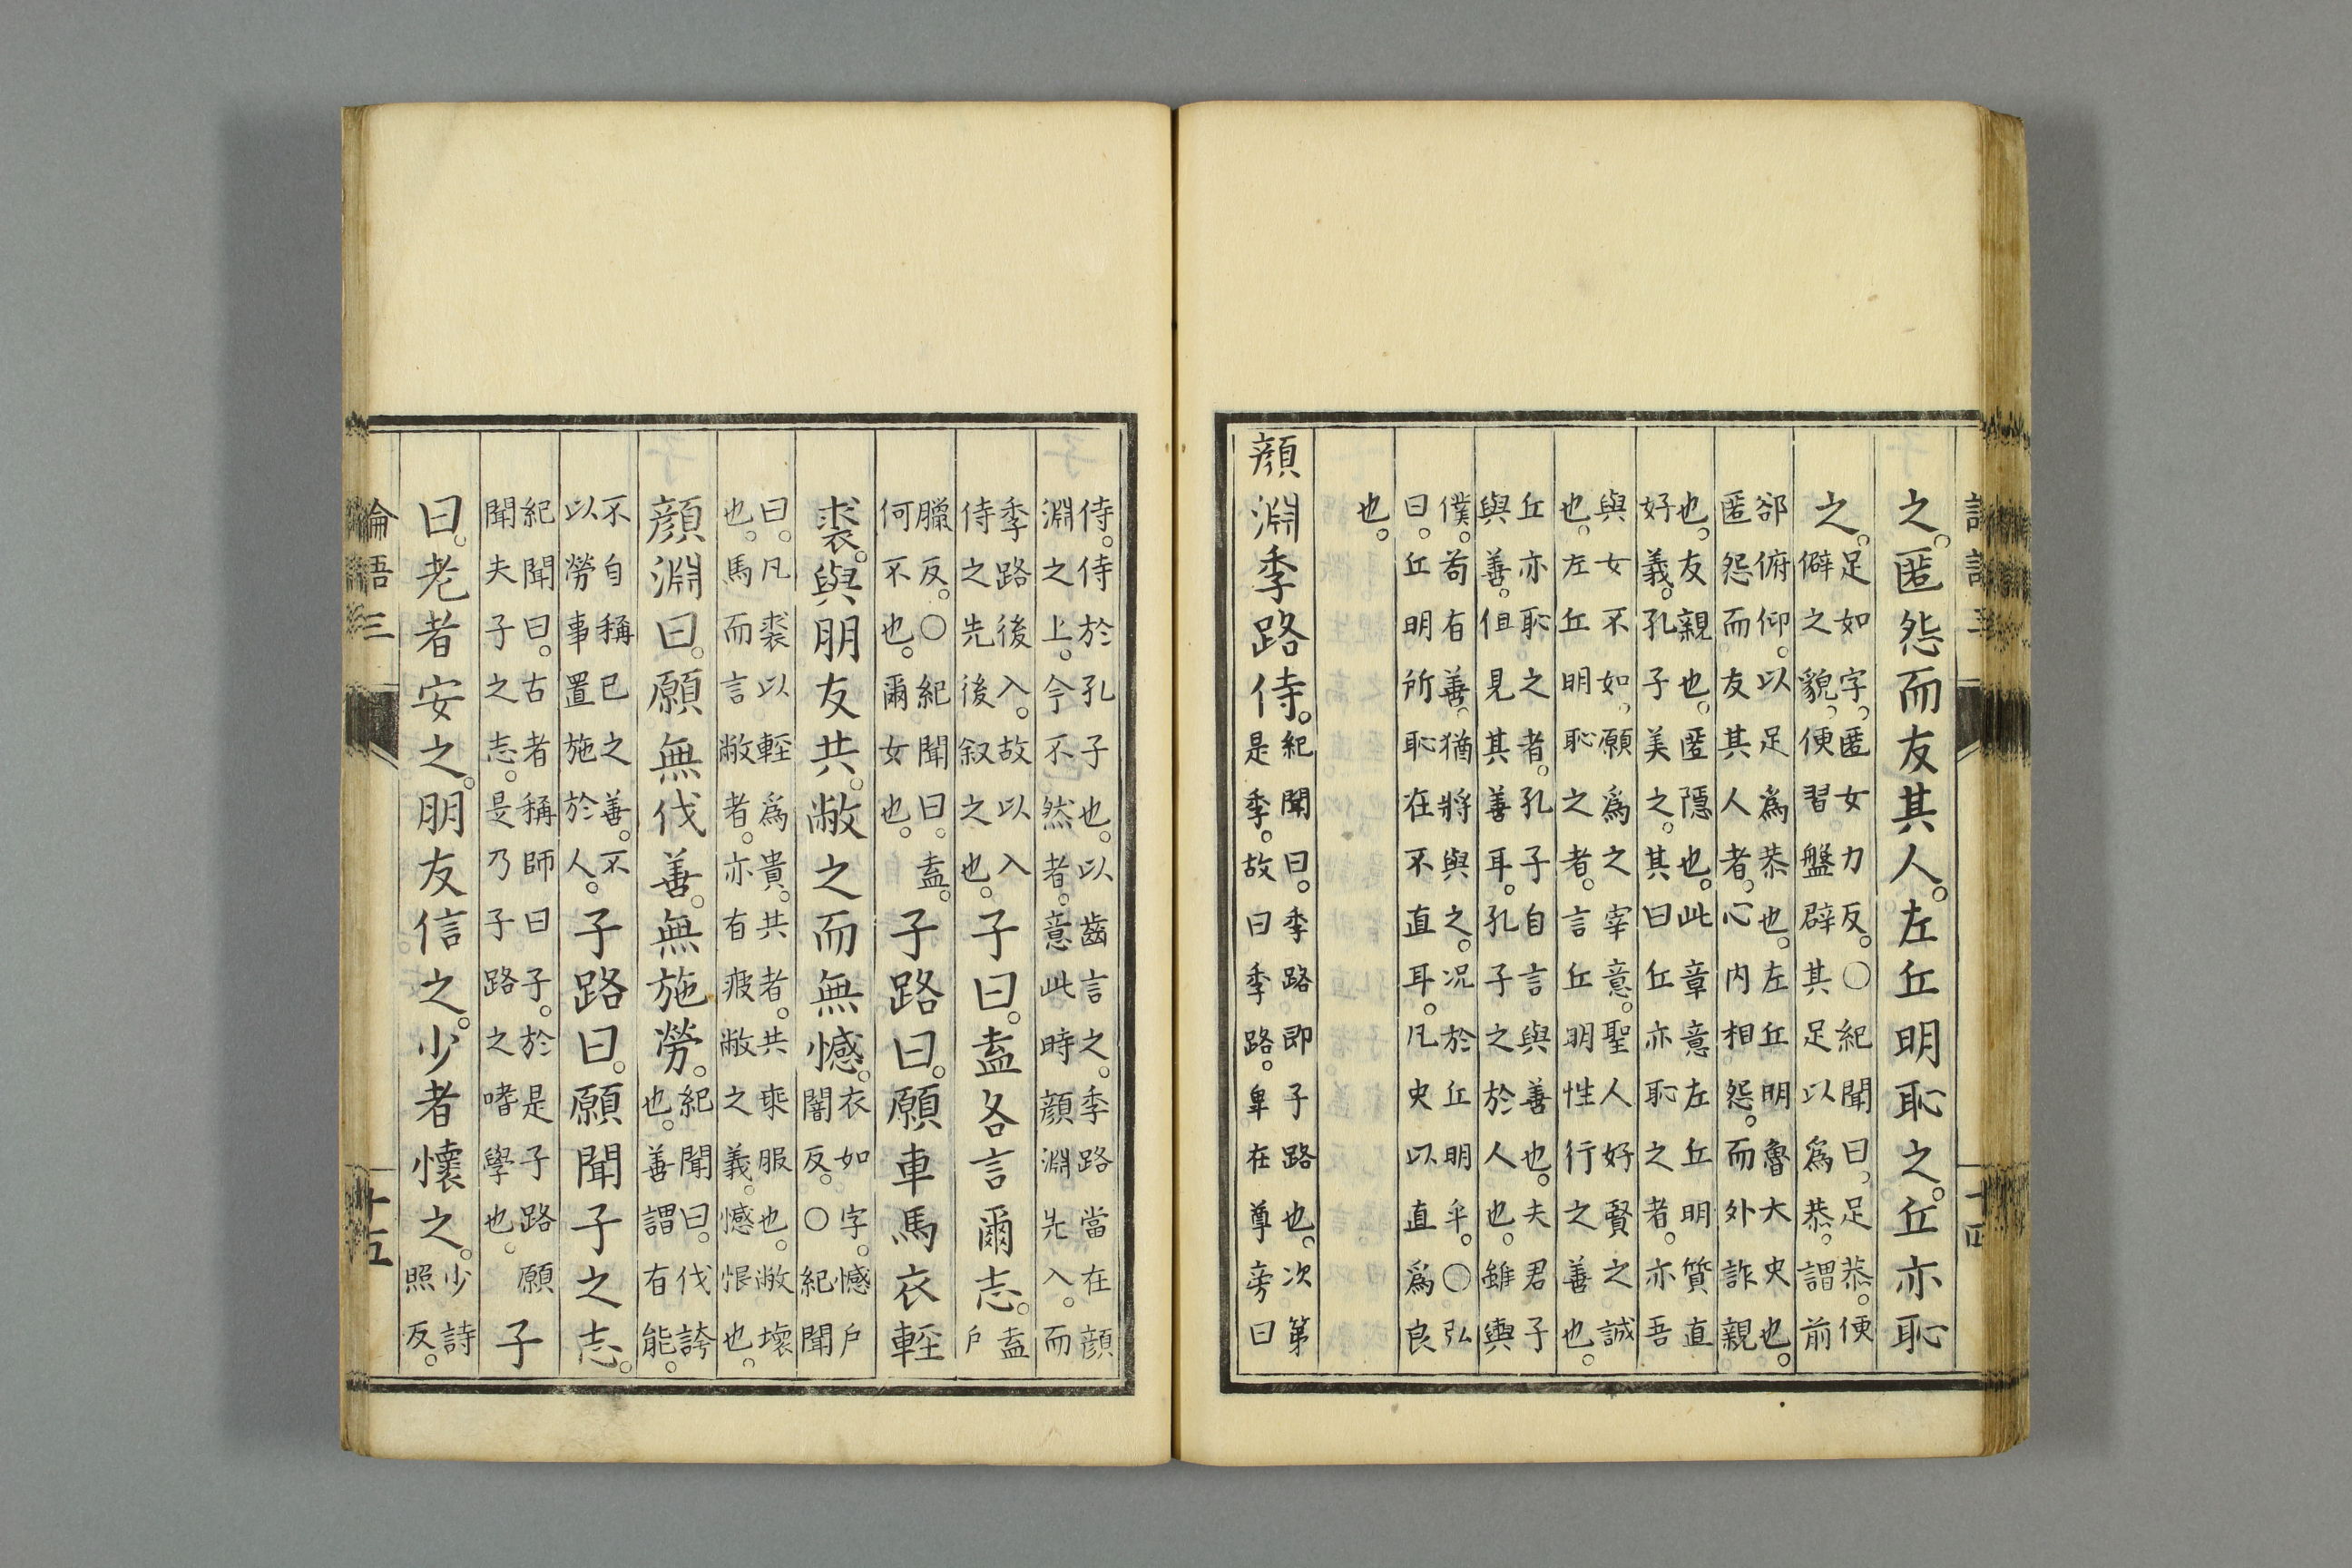 之。匿怨而友其人。左丘明恥之。丘亦恥
之。足如字。匿女力反。○紀聞曰。足恭。便
僻之貌。便習。盤辟其足以爲恭。謂前
郤俯仰。以足爲恭也。左丘明魯大史也。
匿怨而友其人者。心内相怨。而外詐親
也。友親也。匿隱也。此章意左丘明質直
好義。孔子美之。其曰丘亦恥之者。亦吾
與女不如。願爲之宰意。聖人好賢之誠
也。左丘明恥之者。言丘明性行之善也。
丘亦恥之者。孔子自言與善也。夫君子
與善。但見其善耳。孔子之與於人也。雖輿
僕。苟有善。猶將與之。况於丘明乎。○弘
曰。丘明所恥在不直耳。凡史以直爲良
也。
顏淵季路侍。紀聞曰。季路即子路也。次第
是季。故曰季路。卑在尊旁曰
侍。侍於孔子也。以齒言之。季路當在顏
淵之上。今不然者。意此時顏淵先入。而
季路後入。故以入
侍之先後叙之也。子曰。盍各言爾志。盍
戶
臘反。○紀聞曰。盍。
何不也。爾女也。子路曰。願車馬衣輕
裘。與朋友共。敝之而無憾。衣如字。憾戶
闇反。○紀聞
曰。凡裘以輕爲貴。共者。共乘服也。敝壞
也。馬而言敝者。亦有疲敝之義。憾恨也。
顏淵曰。願無伐善。無施勞。紀聞曰。伐誇
也。善謂有能。
不自稱已之善。不
以勞事置施於人。子路曰。願聞子之志。
紀聞曰。古者稱師曰子。於是子路願
聞夫子之志。是乃子路之嗜學也。子
曰。老者安之。朋友信之。少者懷之。少詩
照反。
論語三 十五